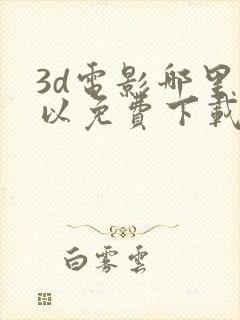 3d電影哪里
以免費下載
白雾雲